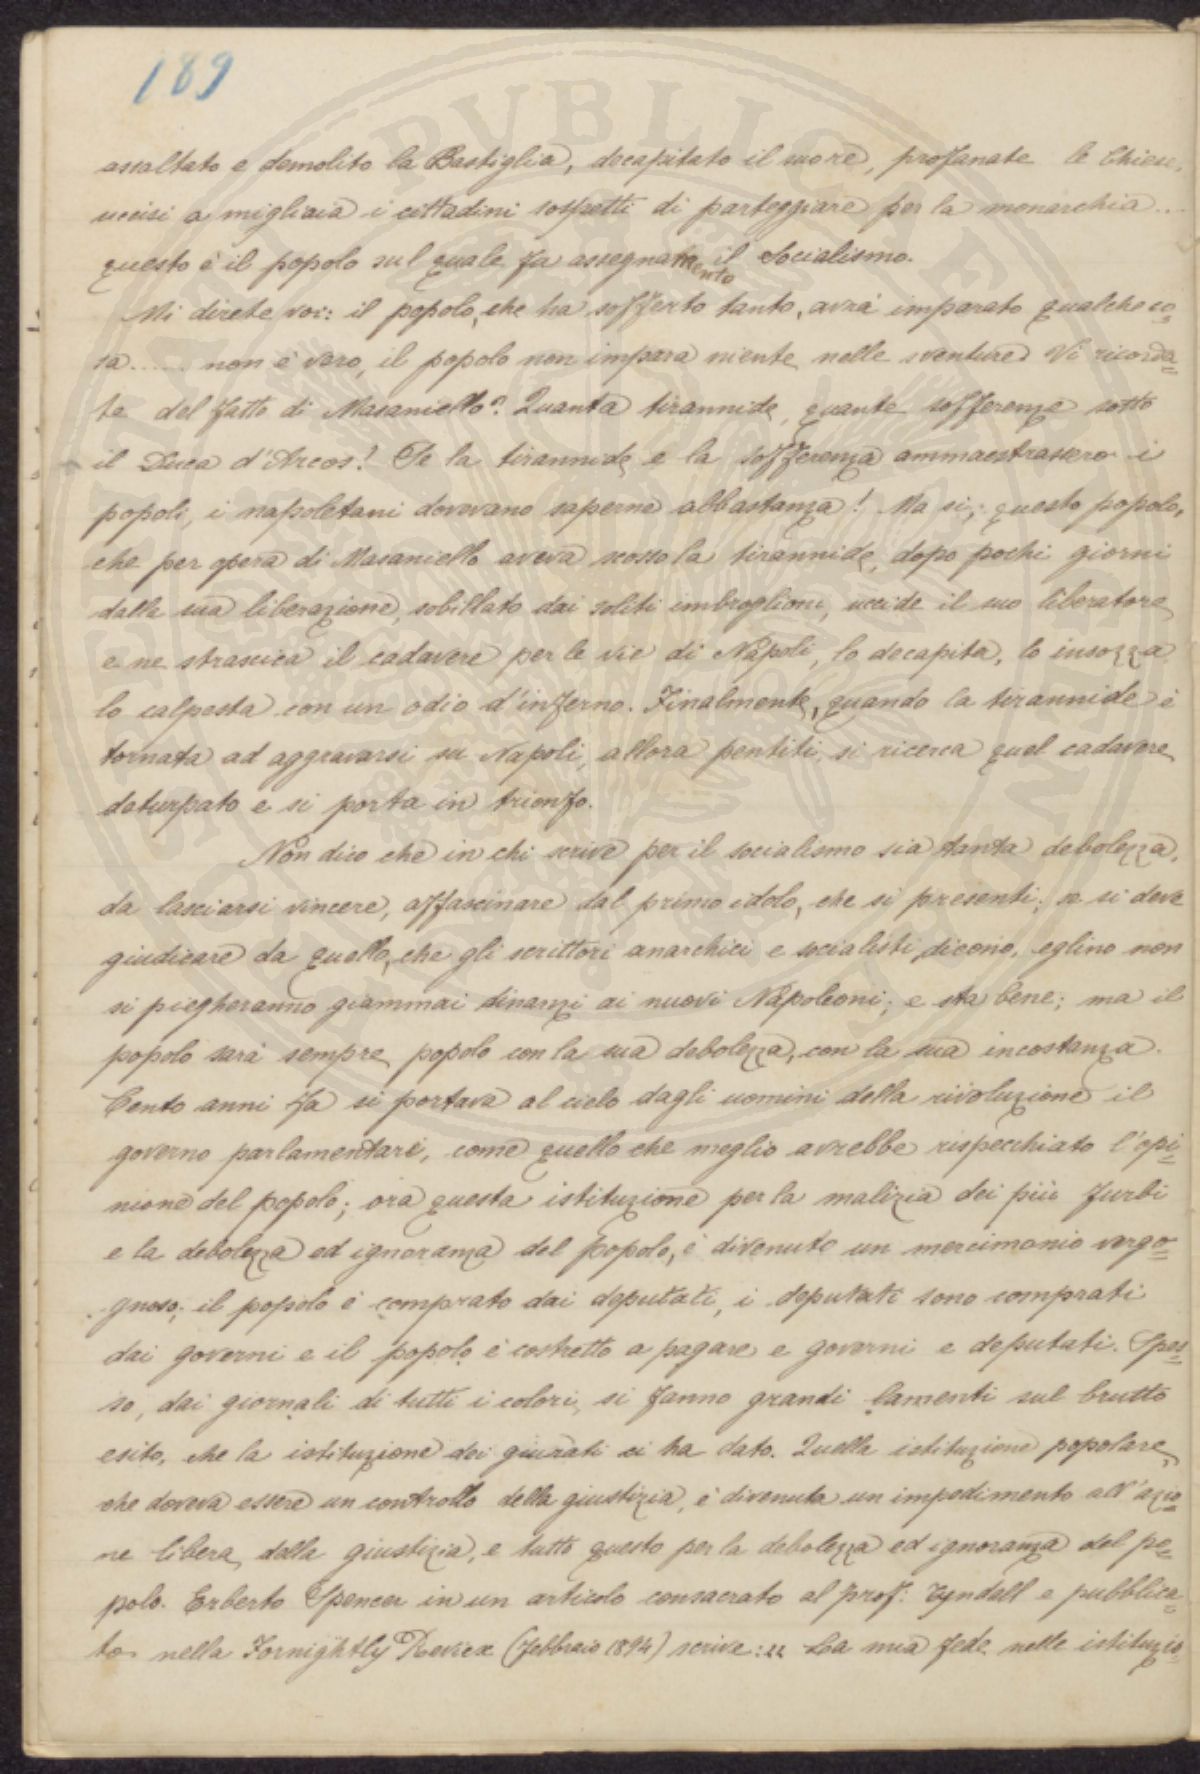 189
assaltato e demolito la Bastiglia, decapitato il suo re, profanate le Chiese,
uccisi a migliaia i cittadini sospetti di parteggiare per la monarchia....
questo è il popolo sul quale fa assegnamento il Socialismo.
Mi direte voi: il popolo, che ha sofferto tanto, avrà imparato qualche co=
sa...... non è vero, il popolo non impara niente nelle sventure. Vi ricorda=
te del fatto di Masaniello? Quanta tirannide, quante sofferenze sotto
il Duca d'Arcos! Se la tirannide e la sofferenza ammaestrassero i
popoli, i napoletani dovevano saperne abbastanza! Ma si; questo popolo,
che per opera di Masaniello aveva scosso la tirannide, dopo pochi giorni
dalla sua liberazione, sobillato dai soliti imbroglioni, uccide il suo liberatore
e ne strascica il cadavere per le vie di Napoli, lo decapita, lo insozza
lo calpesta con un odio d'inferno. Finalmente, quando la tirannide è
tornata ad aggravarsi su Napoli, allora pentiti, si ricerca quel cadavere
deturpato e si porta in trionfo.
Non dico che in chi scrive per il socialismo sia tanta debolezza,
da lasciarsi vincere, affascinare dal primo idolo, che si presenti; se si deve
giudicare da quello, che gli scrittori anarchici e socialisti dicono, eglino non
si piegheranno giammai dinanzi ai nuovi Napoleoni; e sta bene; ma il
popolo sarà sempre popolo con la sua debolezza, con la sua incostanza.
Cento anni fa si portava al cielo dagli uomini della rivoluzione il
governo parlamentare, come quello che meglio avrebbe rispecchiato l'opi=
nione del popolo; ora questa istituzione per la malizia dei più furbi
e la debolezza ed ignoranza del popolo, è divenuto un mercimonio vergo=
gnoso; il popolo è comprato dai deputati, i deputati sono comprati
dai governi e il popolo è costretto a pagare e governi e deputati. Spes=
so, dai giornali di tutti i colori, si fanno grandi lamenti sul brutto
esito, che la istituzione dei giurati ci ha dato. Quella istituzione popolare,
che doveva essere un controllo della giustizia, è divenuta un impedimento all'azio=
ne libera della giustizia, e tutto questo per la debolezza ed ignoranza del po=
polo. Erberto Spencer in un articolo consacrato al prof. Tyndall e pubblica=
to nella Fornightly Reviex (febbraio 1894) scrive: „ La mia fede nelle istituzio=